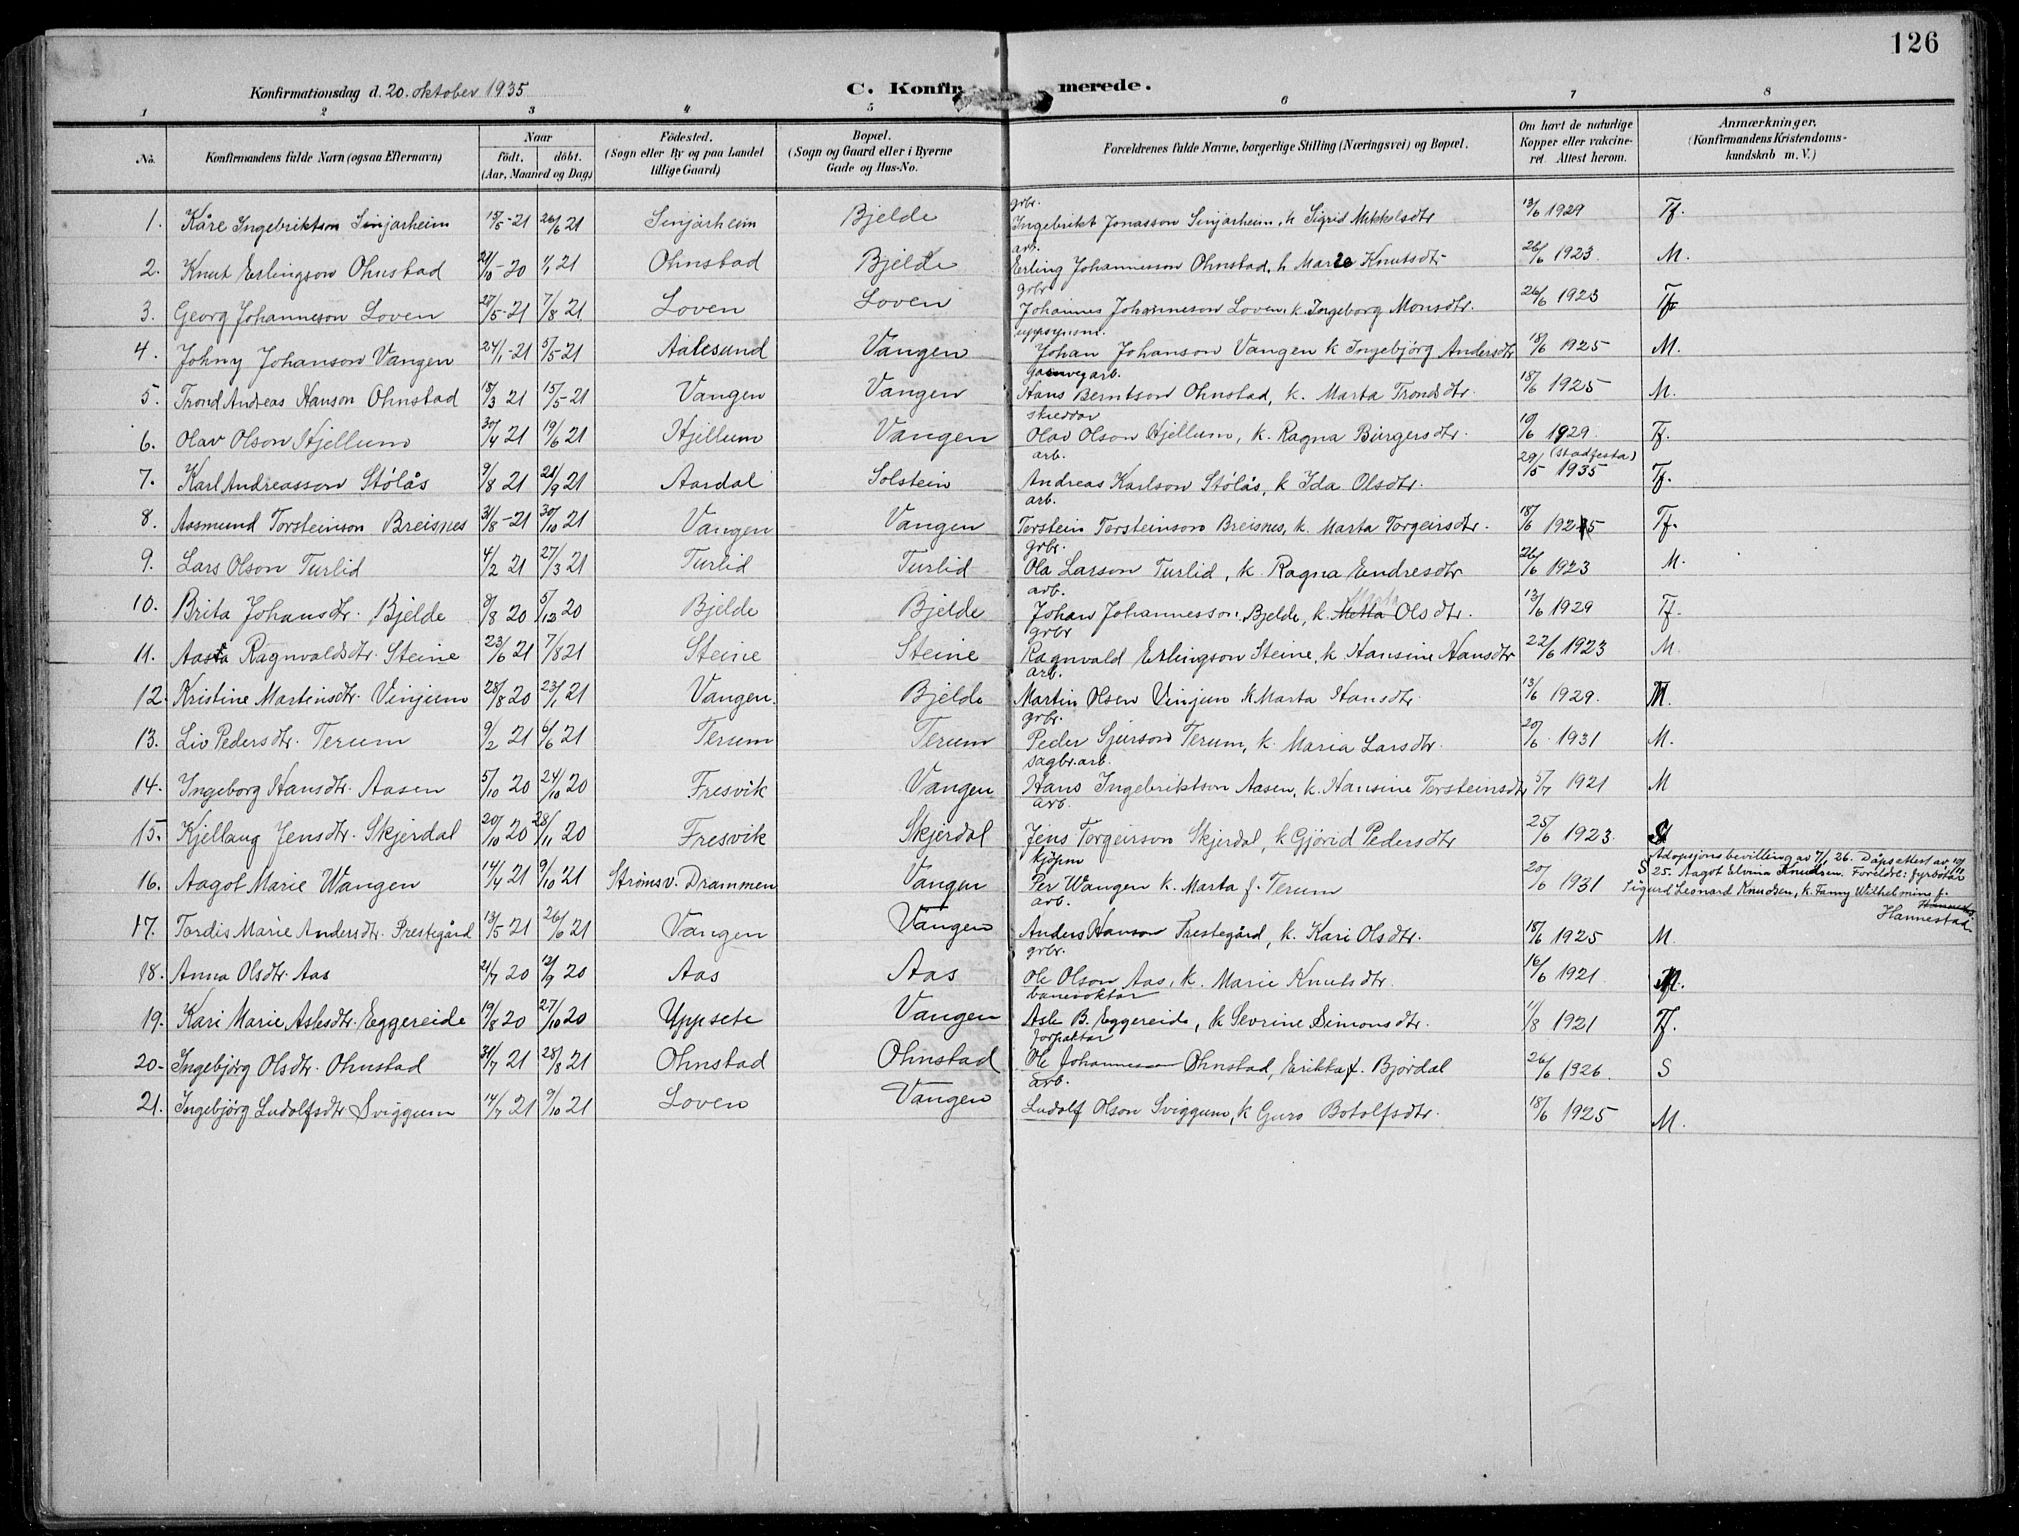 126
Konfirmationsdag d. 20. oktober 1935
C. Konfirmerede.
1 2 3 4 5 6 7 8
No. Konfirmandens fulde Navn (ogsaa Efternavn) Naar født. døbt. (Aar, Maaned og Dag) Fødested. (Sogn eller By og paa Landet tillige Gaard) Bopæl. (Sogn og Gaard eller i Byerne Gade og Hus-No. Forældrenes fulde Navne, borgerlige Stilling (Næringsvei) og Bopæl. Om havt de naturlige Kopper eller vaccineret Attest herom. Anmærkninger, (Konfirmandens Kristendomskundskab m. V.)
grbr.
1. Kåre Ingebriktson Sinjarheim 15/5-21 26/6 21 Sinjarheim Bjelde Ingebrikt Jonasson Sinjarheim, k Sigrid Mikkelsdtr 13/6 1929 Tf.
arb.
2. Knut Erlingson Ohnstad 21/10-20 1/1 21 Ohnstad Bjelde Erling Johannesson Ohnstad, k Marie Knutsdtr 26/6 1923 M.
grbr
3. Georg Johanneson Loven 27/5-21 7/8 21 Loven Loven Johannes Johanneson Loven, k. Ingeborg Monsdtr. 26/6 1923 Tf
uppsynsm.
4. Johny Johanson Vangen 24/1-21 5/5-21 Aalesund Vangen Johan Johanson Vangen k Ingebjørg Andersdtr 18/6 1925 M.
5. Trond Andreas Hanson Ohnstad 15/3 21 15/5-21 Vangen Vangen Hans Berntson Ohnstad, k. Marta Trondsdtr. 18/6 1925 M.
skreddar
6. Olav Olson Hjellum 30/4 21 19/6 21 Hjellum Vangen Olav Olson Hjellum, k. Ragna Birgersdtr. 10/6 1929. Tf.
arb. (Stadfesta)
7. Karl Andreasson Stølås 9/8 21 21/9 21 Aardal Solstein Andreas Karlson Stølås, k Ida Olsdtr. 29/5 1935 Tf.
arb.
8. Aasmund Torsteinson Breisnes 31/8-21 30/10 21 Vangen Vangen Torstein Torsteinson Breisnes, k. Marta Torgeirsdtr. 18/6 1925 Tf.
grbr.
9. Lars Olson Turlid 4/2 21 27/3 21 Turlid Turlid Ola Larson Turlid, k. Ragna Endresdtr 26/6 1923 M.
arb.
10. Brita Johansdtr. Bjelde 8/8 20 5/12 20 Bjelde Bjelde Johan Johannesson Bjelde, k. Metta Olsdtr. 13/6 1929 Tf.
grbr
11. Aasta Ragnvaldsdtr. Steine 23/6 21 7/8 21 Steine Steine Ragnvald Erlingson Steine, k Hansine Hansdtr 22/6 1923 M.
arb.
12. Kristine Martinsdtr. Vinjum 28/8 20 23/1 21 Vangen. Bjelde Martin Olsen Vinjum k Marta Hansdtr. 13/6 1929. M.
grbr.
13. Liv Pedersdtr. Terum 9/2 21 6/6 21 Terum Terum Peder Sjurson Terum, k. Maria Larsdtr. 20/6 1931 M.
sagbr.arb.
14. Ingeborg Hansdtr. Aasen 5/10 20 24/10 20 Fresvik Vangen Hans Ingebriktson Aasen, k. Hansine Torsteinsdtr 5/7 1921 M
arb.
15. Kjellaug Jensdtr. Skjerdal 20/10 20 28/11 20 Fresvik Skjerdal Jens Torgeirson Skjerdal, k Gjørid Pedersdtr 25/6 1923.
kjøpm
16. Aagot Marie Wangen 14/4 21 9/10 21 Strømsv. Drammen Vangen Per Wangen k. Marta f. Terum 20/6 1931 S
Adopsjonsbevilling av 7/1 26. Dåpsattest av 10/11
25. Aagot Elvina Knudsen. Foreldre: fyrbøtar
Sigurd Leonard Knudsen, k. Fanny Wilhelmine f.
Hannestad
arb.
17. Tordis Marie Andersdtr. Prestegård 13/5 21 26/6 21 Vangen Vangen Anders Hanson Prestegård, k. Kari Olsdtr. 18/6 1925 M.
grbr.
18. Anna Olsdtr. Aas 21/7 20 12/9 20 Aas Aas Ole Olson Aas, k. Marie Knutsdtr. 16/6 1921. M.
banevoktar
19. Kari Marie Aslesdtr. Eggereide 19/8 20 27/10 20 Uppsete Vangen Asle B. Eggereide, k Sevrine Simonsdtr. 11/8 1921 Tf.
forpaktar
20. Ingebjørg Olsdtr. Ohnstad 31/7 21 28/8 21 Ohnstad Ohnstad Ole Johannesson Ohnstad, Erikka f. Bjørdal 26/6 1926. S
arb.
21. Ingebjørg Ludolfsdtr Sviggum 14/7 21 9/10 21 Loven Vangen Ludolf Olson Sviggum, k Guro Botolfsdtr. 18/6 1925 M.